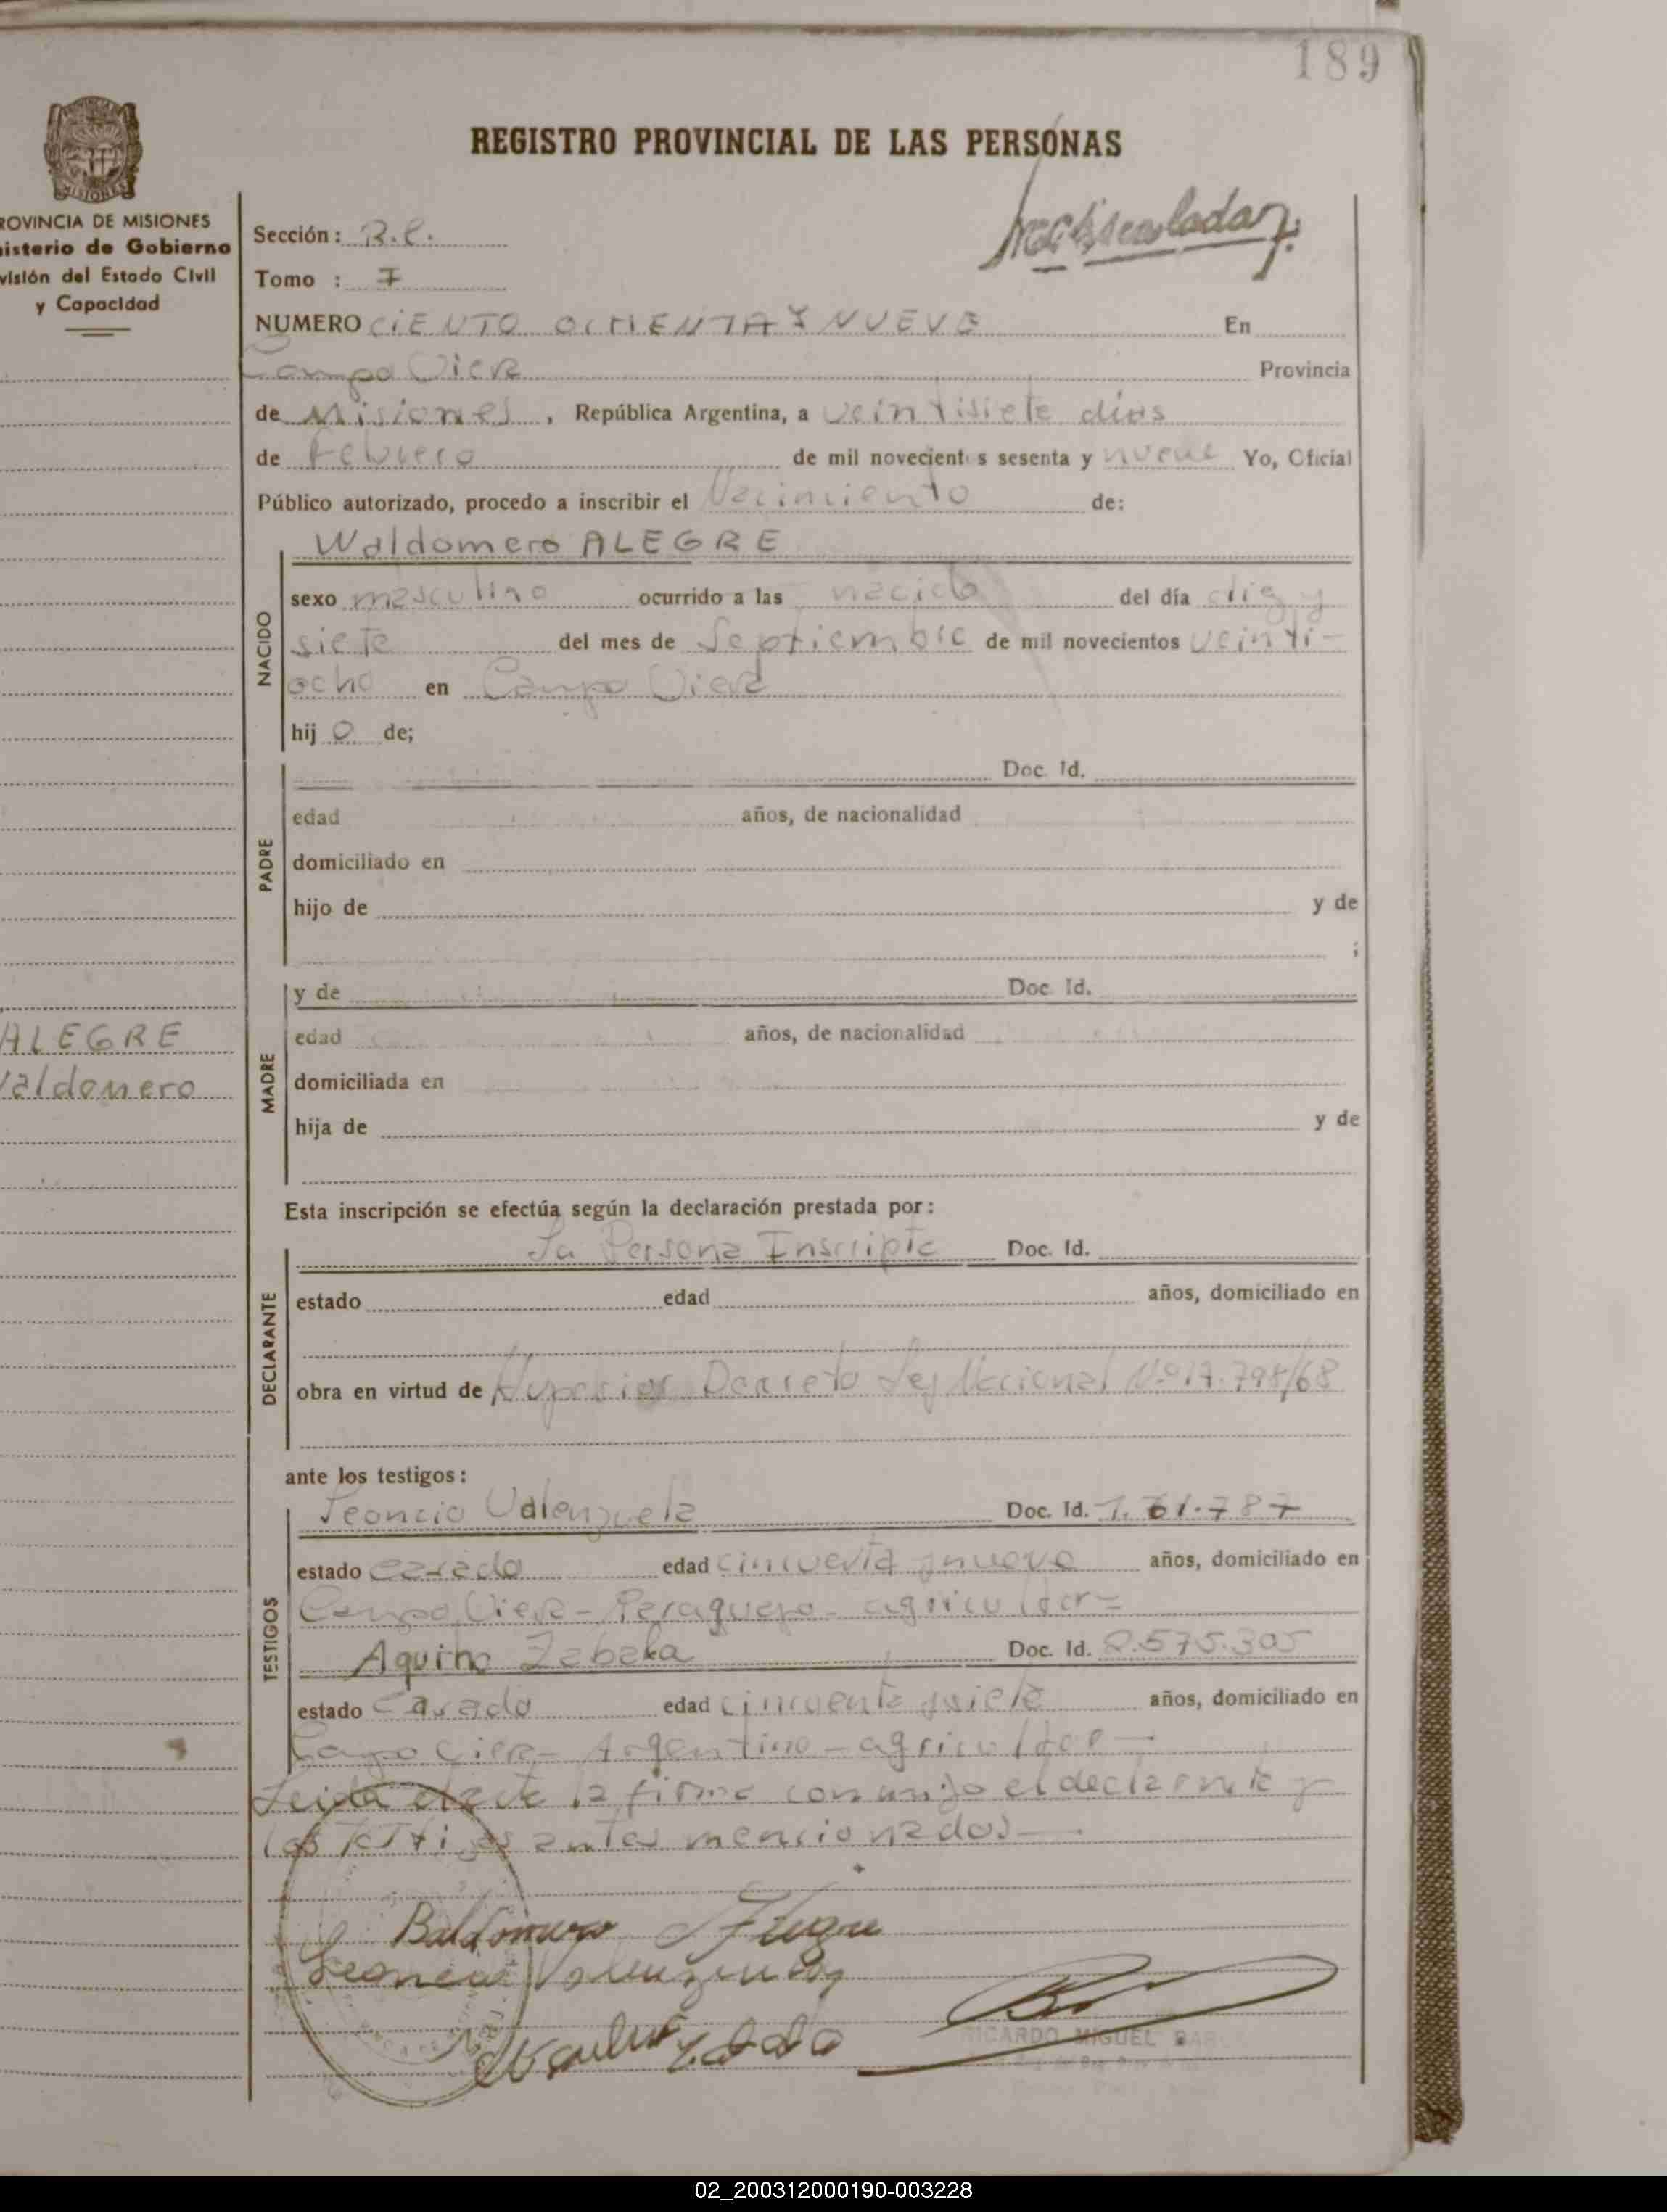 189
REGISTRO PROVINCIAL DE LAS PERSONAS
MISIONES
ROVINCIA DE MISIONES
isterio de Gobierno
visión del Estado Civil
y Capacidad
Sección: R.C.
Tomo : 7
NUMERO CIENTO OCHENTA Y NUEVE En
Campo Viera Provincia
de Misiones, República Argentina, a veintisiete días
de Febrero de mil novecientos sesenta y nueve Yo, Oficial
Público autorizado, procedo a inscribir el Nacimiento de:
Waldomero ALEGRE
NACIDO
sexo masculino ocurrido a las nacido del día diez y
siete del mes de Septiembre de mil novecientos veinti-
ocho en Campo Viera
hij o de;
PADRE
Doc. Id.
edad años, de nacionalidad
domiciliado en
hijo de y de
;
MADRE
y de Doc. Id.
edad años, de nacionalidad
domiciliada en
hija de y de
ALEGRE
Valdomero
Esta inscripción se efectúa según la declaración prestada por:
DECLARANTE
La Persona Inscripta Doc. Id.
estado edad años, domiciliado en
obra en virtud de Superior Decreto Ley Nacional Nº 17.798/68
ante los testigos:
TESTIGOS
Leoncio Valenzuela Doc. Id. 1. 61.787
estado casado edad cincuenta y nueve años, domiciliado en
Campo Viera - Paraguayo - agricultor =
Aquino Zabala Doc. Id. 2.575.305
estado Casado edad cincuenta y siete años, domiciliado en
Campo Viera - Argentino - agricultor -
Leida el acta la firma conmigo el declarante y
los testigos antes mencionados -
Baldomero Alegre
Leoncio Valenzuela
RICARDO MIGUEL BAR
02_200312000190-003228